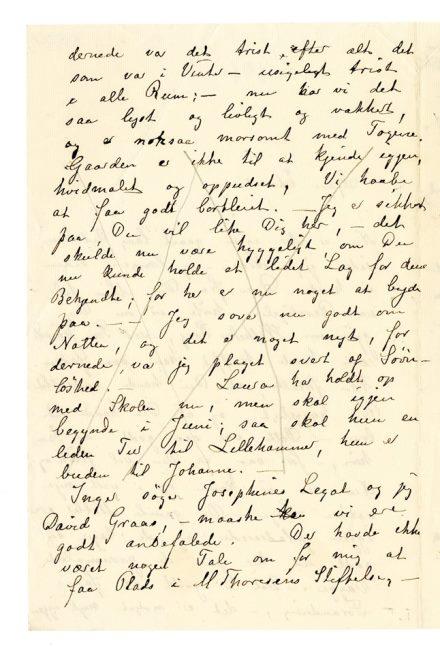 dernede var det trist, efter alt det
som var i Vinter – usigeligt trist
i alle Rum; – nu har vi det
saa lyst og livligt og vakkert,
og er noksaa morsomt med Togene.
Gaarden er ikke til at kjende iggen,
hvidmalet og oppudset, Vi haabe
at faa godt bortleiet. – Jeg er sikker
paa, Du vil like Dig her, – det
skulde nu være hyggeligt, om Du
nu kunde holde et lidet Lag for dine
Bekjendte; for her er nu noget at byde
paa. – – Jeg sover nu godt om
Natten, og det er noget nyt, for
dernede var jeg plaget svert af Søvn-
løshed. Laura har holdt op
med Skolen nu, men skal iggen
begynde i Juni; saa skal hun en
liden Tur til Lillehammer, hun er
buden til Johanne. –
Inga søger Josephines Legat og jeg
David Graas, – maaske vi ere
godt anbefalede. Der havde ikke
været noget Tale om for mig at
faa Plads i M Thoresens Stiftelse, –